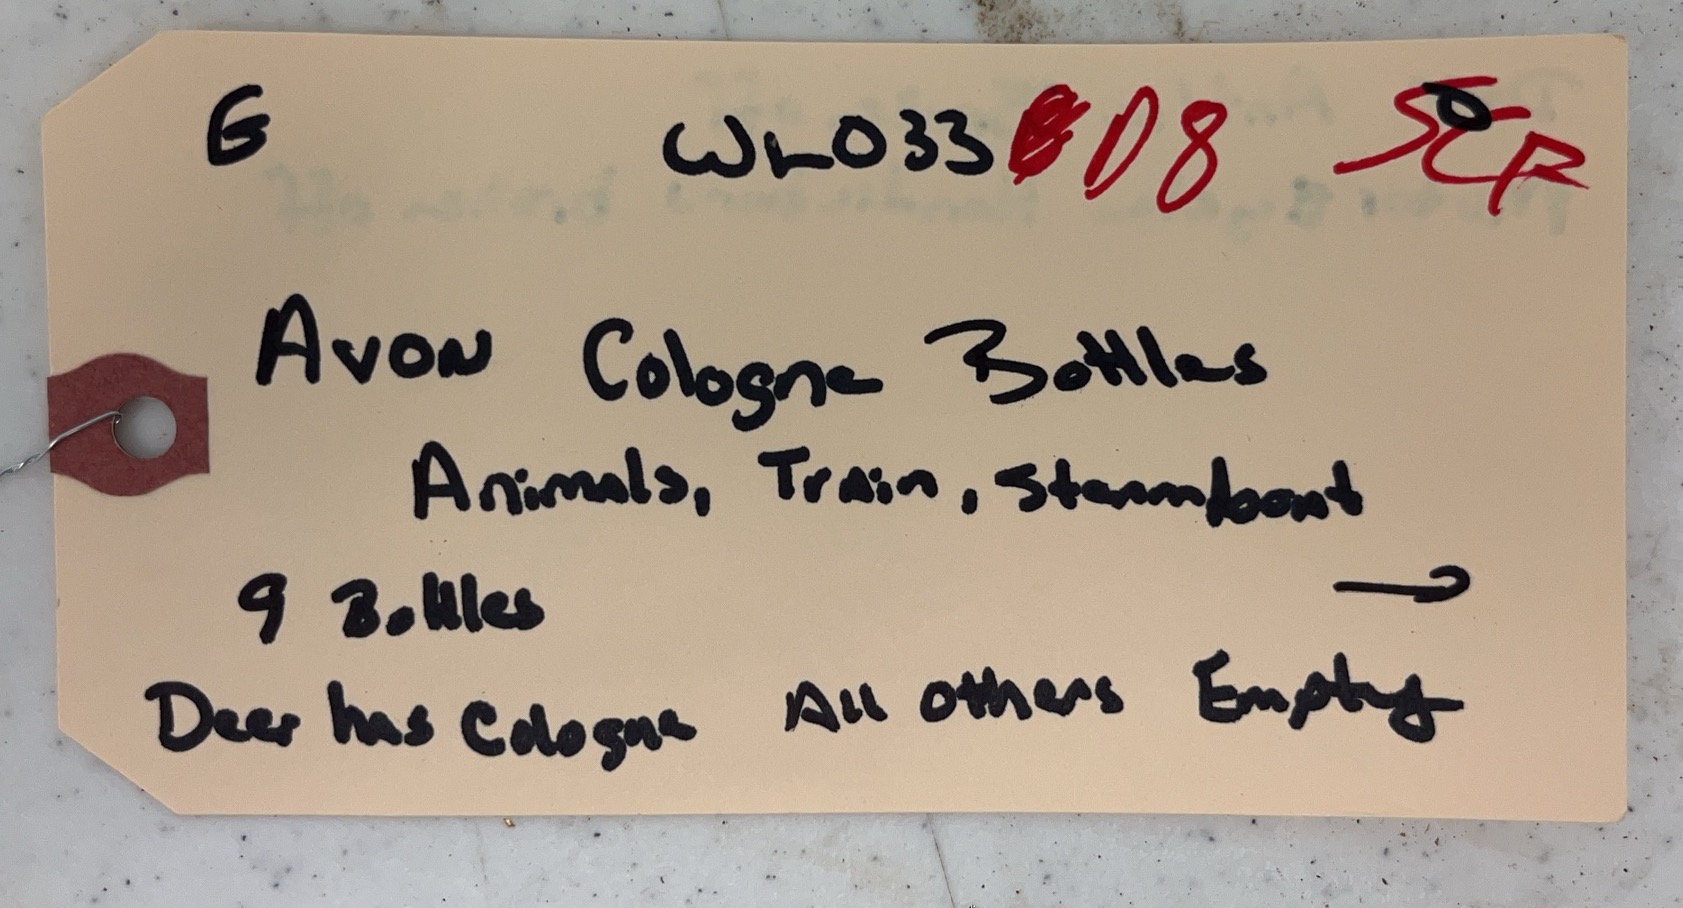 G WL033 D8 SCR
Avon Cologne Bottles
Animals, Train, Steamboat
9 Bottles →
Deer has Cologne All others Empty